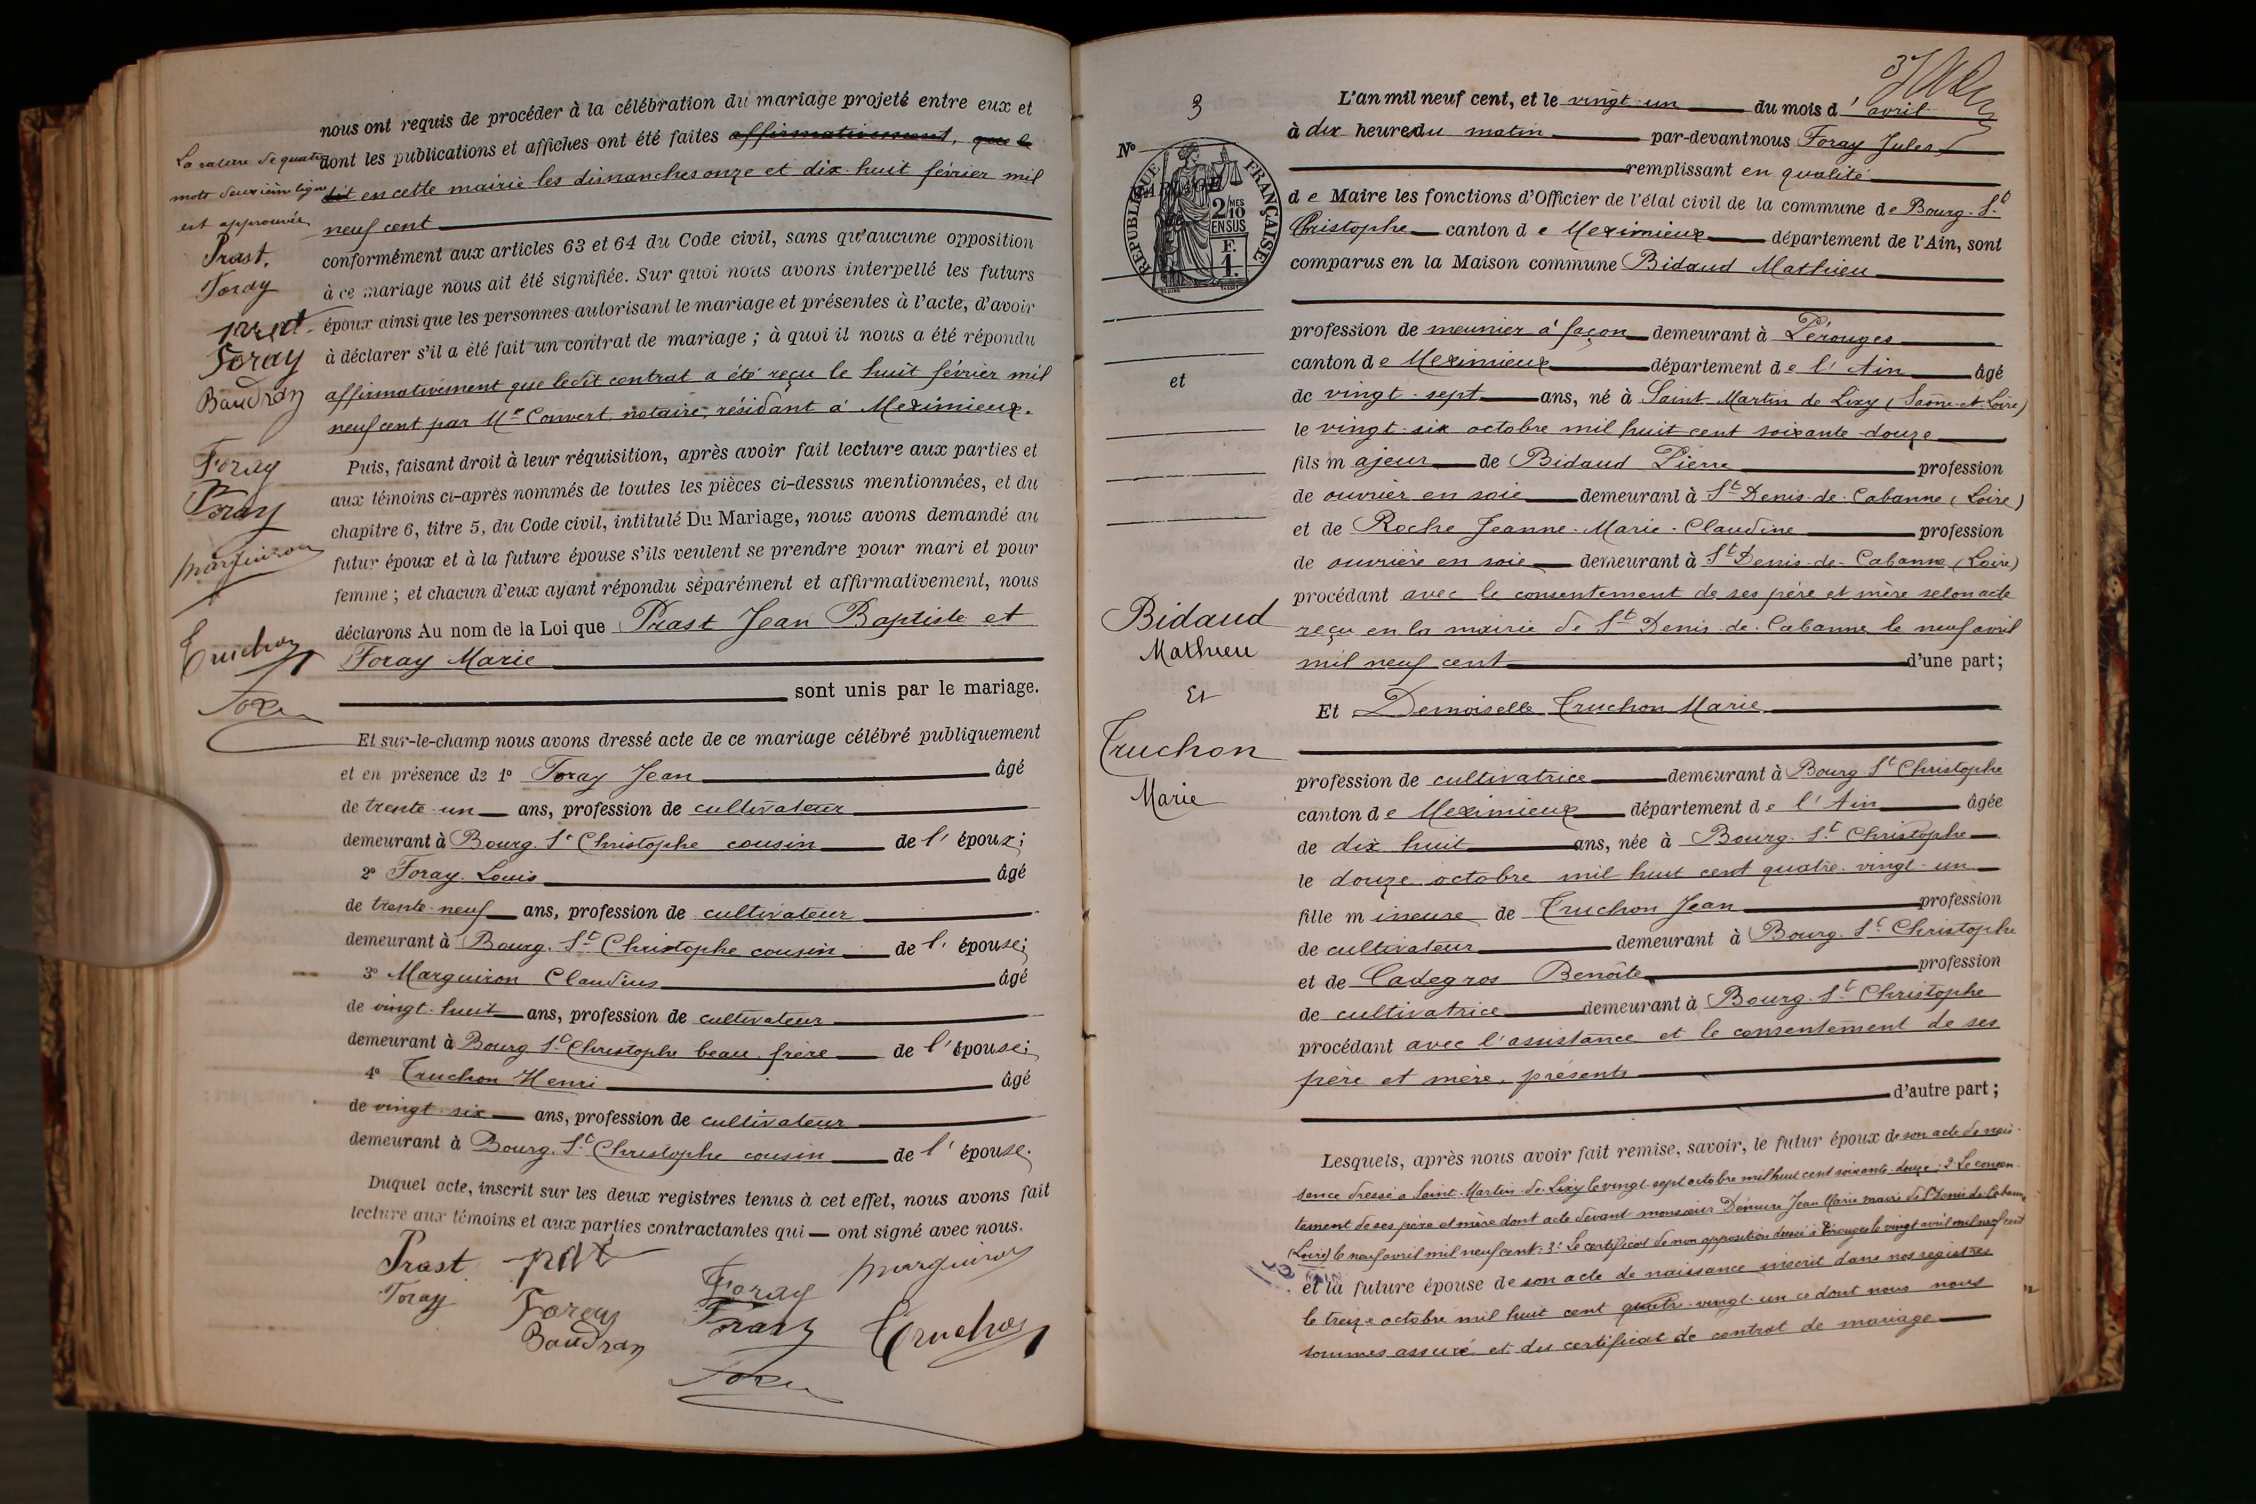 nous ont requis de procéder à la célébration du mariage projeté entre eux et
dont les publications et affiches ont été faites affirmativement, que le
dit en cette mairie les dimanches onze et dix-huit février mil
neuf cent
conformément aux articles 63 et 64 du Code civil, sans qu'aucune opposition
à ce mariage nous ait été signifiée. Sur quoi nous avons interpellé les futurs
époux ainsi que les personnes autorisant le mariage et présentes à l'acte, d'avoir
à déclarer s'il a été fait un contrat de mariage ; à quoi il nous a été répondu
affirmativement que ledit contrat a été reçu le huit février mil
neuf cent par Me Convert notaire, résidant à Meximieux.
Puis, faisant droit à leur réquisition, après avoir fait lecture aux parties et
aux témoins ci-après nommés de toutes les pièces ci-dessus mentionnées, et du
chapitre 6, titre 5, du Code civil, intitulé Du Mariage, nous avons demandé au
futur époux et à la future épouse s'ils veulent se prendre pour mari et pour
femme ; et chacun d'eux ayant répondu séparément et affirmativement, nous
déclarons Au nom de la Loi que Prast Jean Baptiste et
Foray Marie
sont unis par le mariage.
Et sur-le-champ nous avons dressé acte de ce mariage célébré publiquement
et en présence de 1° Foray Jean âgé
de trente-un ans, profession de cultivateur
demeurant à Bourg-St Christophe cousin de l'époux;
2° Foray Louis âgé
de trente-neuf ans, profession de cultivateur
demeurant à Bourg-St Christophe cousin de l'épouse;
3° Marguiron Claudius âgé
de vingt-huit ans, profession de cultivateur
demeurant à Bourg St Christophe beau-frère de l'épouse;
4° Truchon Henri âgé
de vingt-six ans, profession de cultivateur
demeurant à Bourg-St Christophe cousin de l'épouse.
Duquel acte, inscrit sur les deux registres tenus à cet effet, nous avons fait
lecture aux témoins et aux parties contractantes qui ont signé avec nous.
Prast Prast Foray Marguiron
Foray Foray Foray Truchon
Baudran
Foray
La rature de quatre
mots deuxième ligne
est approuvée
Prast.
Foray
Prast
Foray
Baudran
Foray
Foray
Marguiron
Truchon
Foray
3
N°
MARIAGE
RÉPUBLIQUE FRANÇAISE
2/10 MES
EN SUS
F.
1.
et
Bidaud
Mathieu
Et
Truchon
Marie
L'an mil neuf cent, et le vingt-un du mois d'avril
à dix heures du matin par-devant nous Foray Jules
remplissant en qualité
de Maire les fonctions d'Officier de l'état civil de la commune de Bourg-St
Christophe canton de Meximieux département de l'Ain, sont
comparus en la Maison commune Bidaud Mathieu
profession de meunier à façon demeurant à Pérouges
canton de Meximieux département de l'Ain âgé
de vingt-sept ans, né à Saint-Martin de Lixy (Saône-et-Loire)
le vingt-six octobre mil huit cent soixante-douze
fils majeur de Bidaud Pierre profession
de ouvrier en soie demeurant à St Denis-de-Cabanne (Loire)
et de Roche Jeanne-Marie-Claudine profession
de ouvrière en soie demeurant à St Denis-de-Cabanne (Loire)
procédant avec le consentement de ses père et mère selon acte
reçu en la mairie de St Denis-de-Cabanne le neuf avril
mil neuf cent d'une part;
Et Demoiselle Truchon Marie
profession de cultivatrice demeurant à Bourg St Christophe
canton de Meximieux département de l'Ain âgée
de dix huit ans, née à Bourg-St Christophe
le douze octobre mil huit cent quatre-vingt-un
fille mineure de Truchon Jean profession
de cultivateur demeurant à Bourg-St Christophe
et de Cadegros Benoîte profession
de cultivatrice demeurant à Bourg-St Christophe
procédant avec l'assistance et le consentement de ses
père et mère, présents
d'autre part ;
Lesquels, après nous avoir fait remise, savoir, le futur époux de son acte de nais-
sance dressé à Saint-Martin-de-Lixy le vingt-sept octobre mil huit cent soixante-douze; 2° Le consen-
tement de ses père et mère dont acte devant monsieur Démure Jean Marie maire de St Denis-de-Cabanne
(Loire) le neuf avril mil neuf cent; 3° Le certificat de non opposition dressé à Pérouges le vingt avril mil neuf cent
et la future épouse de son acte de naissance inscrit dans nos registres
le treize octobre mil huit cent quatre-vingt-un ce dont nous nous
sommes assuré et du certificat de contrat de mariage